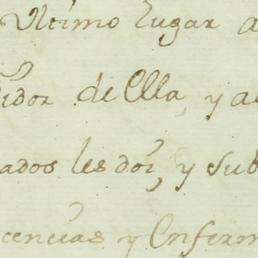 Ultimo lugar a
idor de Ella, y a
ados les doi, y sub
cencias y Conferm